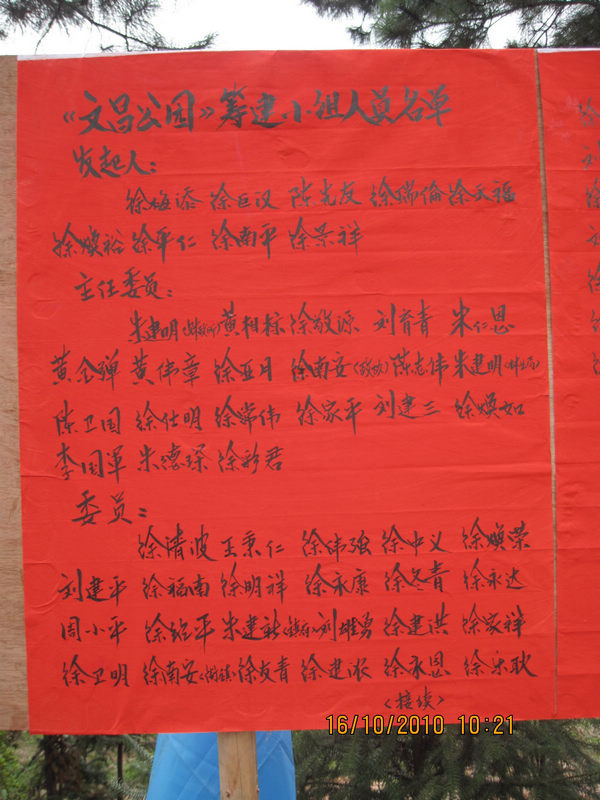 《文昌公园》筹建小组人员名单
发起人：
徐梅添 徐巨汉 陈光友 徐瑞倫 徐天福
徐焕裕 徐平仁 徐南平 徐景祥
主任委员：
朱建明 黄相标 徐敬源 刘育青 朱仁恩
黄金弹 黄伟章 徐亚月 徐南安 陈志伟 朱建明
陈卫国 徐仕明 徐常伟 徐家平 刘建三 徐焕如
李国軍 朱德琛 徐彩君
委员：
徐清波 王秉仁 徐伟强 徐中义 徐焕荣
刘建平 徐福南 徐明祥 徐永康 徐冬青 徐永达
周小平 徐经平 朱建新 刘雄勇 徐建洪 徐家祥
徐卫明 徐南安 徐友青 徐建 徐永恩 徐乐耿
〈接续〉
16/10/2010 10:21